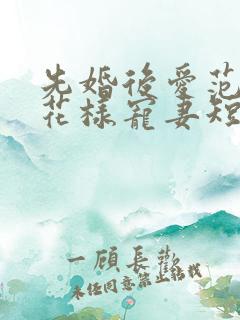 先婚後愛范
花樣寵妻短
一顧長歡
未经同意禁止转载